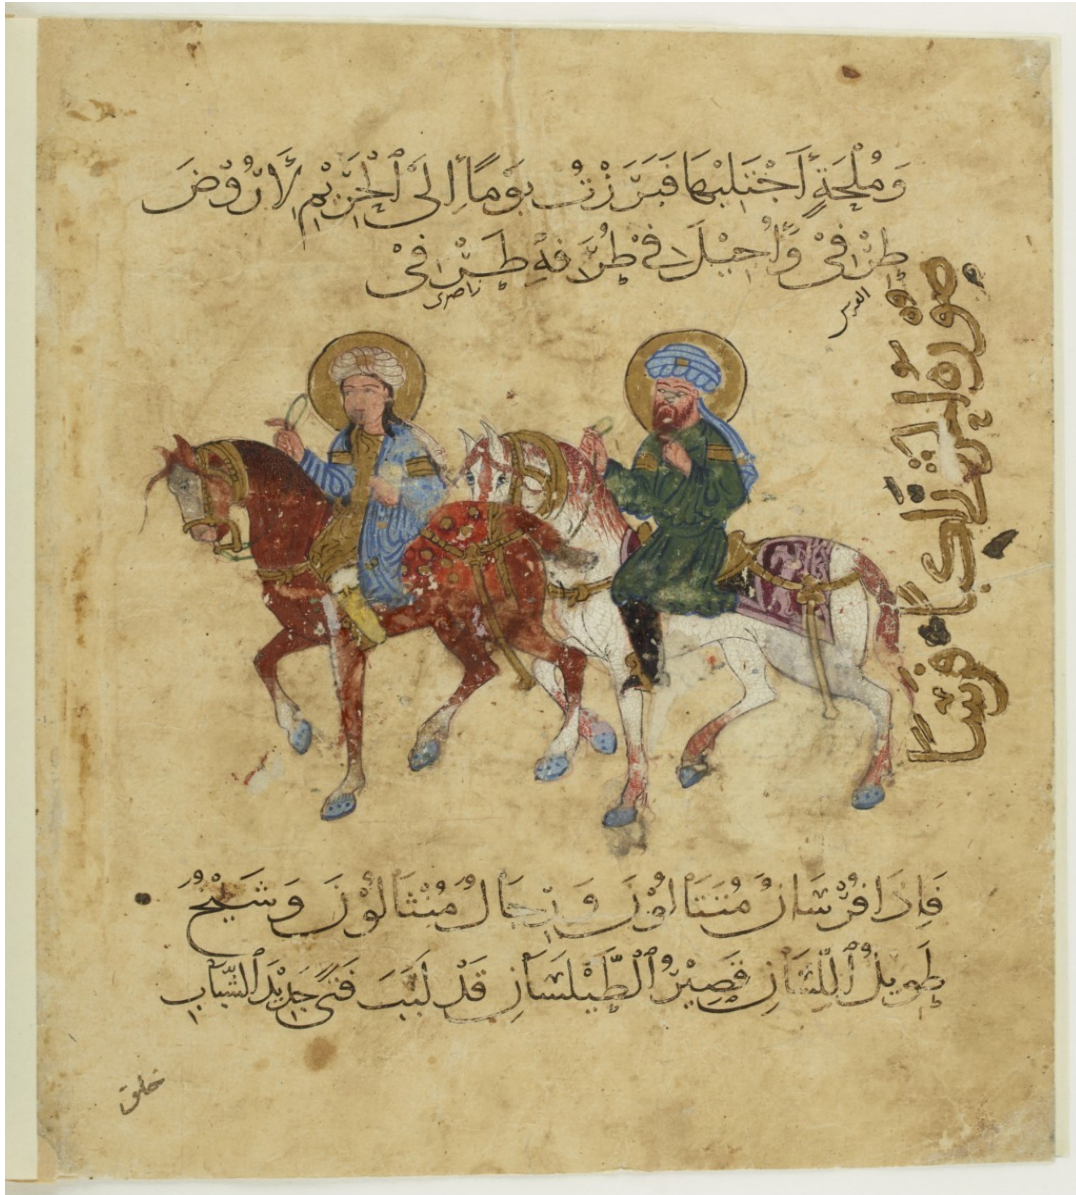 وَمُلْحَةٍ أَجْتَلِيْهَا فَبَرَزْتُ يَوْمًا إِلَى ٱلْحَرِيْمِ لِأَرُوْضَ
طِرْفِيْ وَأُجِيْلَ فِيْ طُرُقِهِ طَرْفِيْ
الفرس
ناصرى
صورة
فرسا
فَإِذَا فُرْسَانٌ مُتَتَالُوْنَ وَرِجَالٌ مُنْثَالُوْنَ وَشَيْخٌ
طَوِيْلُ ٱللِّسَانِ قَصِيْرُ ٱلطَّيْلَسَانِ قَدْ لَبَّبَ فَتًى جَدِيْدَ ٱلشَّبَابِ
خلق